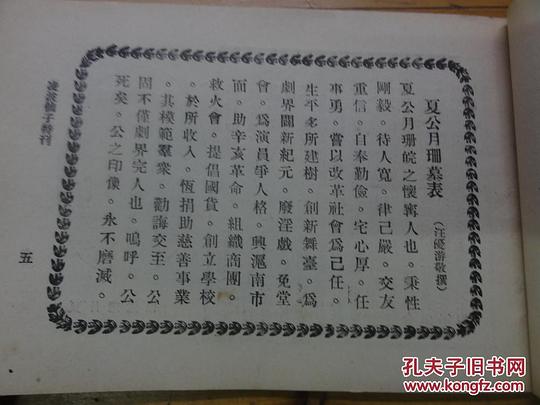 夏公月珊墓表（汪優游敬撰）
夏公月珊皖之懷寗人也。秉性
剛毅。待人寬。律己嚴。交友
重信。自奉勤儉。宅心厚。任
事勇。嘗以改革社會爲己任。
生平多所建樹。創新舞臺。爲
劇界闢新紀元。廢淫戲。免堂
會。爲演員爭人格。興滬南市
面。助辛亥革命。組織商團。
救火會。提倡國貨。創立學校
。於所收入。恆捐助慈善事業
。其模範羣衆。勸誨交至。公
固不僅劇界完人也。嗚呼。公
死矣。公之印像。永不磨滅。
凌波仙子特刊
五
孔夫子旧书网
www.kongfz.com